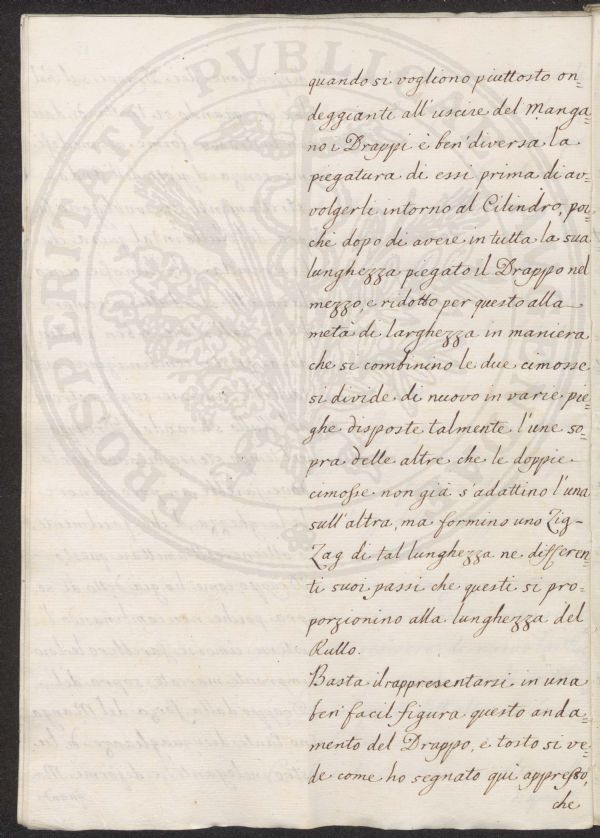 quando si vogliono piuttosto on=
deggianti all'uscire del Manga=
no i Drappi è ben diversa la
piegatura di essi prima di av=
volgerli intorno al Cilindro, poi=
chè dopo di avere in tutta la sua
lunghezza piegato il Drappo nel
mezzo, e ridotto per questo alla
metà di larghezza in maniera
che si combinino le due cimosse
si divide di nuovo in varie pie=
ghe disposte talmente l'une so=
pra delle altre che le doppie
cimosse non già s'adattino l'una
sull'altra, ma formino uno Zig-
Zag di tal lunghezza ne differen=
ti suoi passi che questi si pro=
porzionino alla lunghezza del
Rullo.
Basta il rappresentarsi in una
ben facil figura questo anda=
mento del Drappo, e tosto si ve=
de come ho segnato qui appresso,
che
PROSPERITATI PVBLICAE